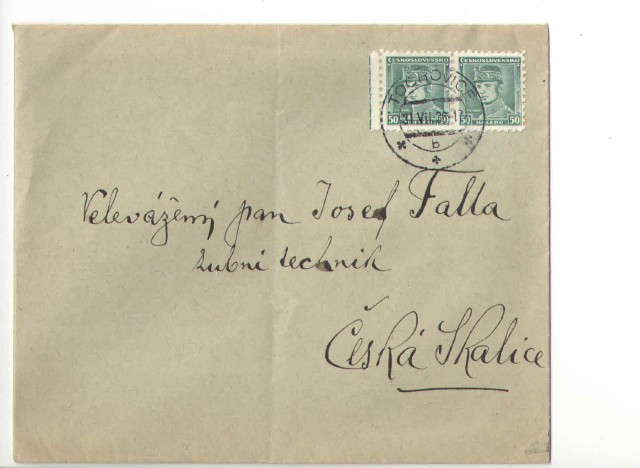 ČESKOSLOVENSKO ČESKOSLOVENSKO
50 HALÉŘŮ 50
TOCHOVICE
31.VII.36-17
b
Velevážený pan Josef Falta
zubní technik
Česká Skalice